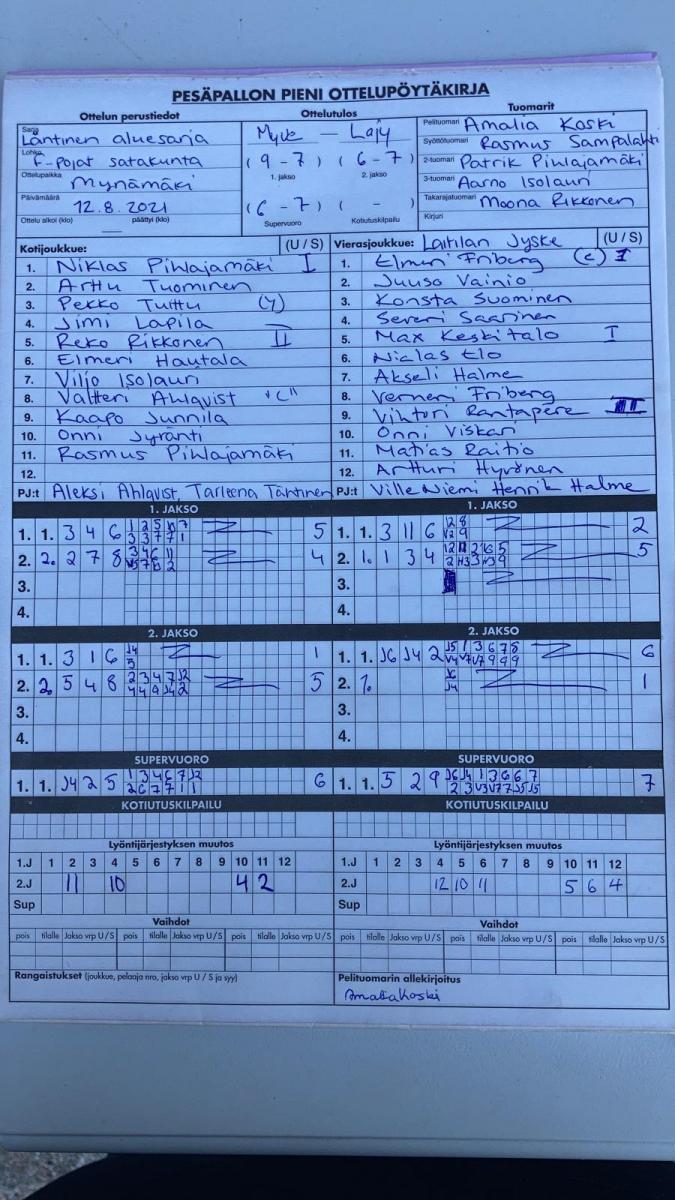 PESÄPALLON PIENI OTTELUPÖYTÄKIRJA
Ottelun perustiedot
Sarja Läntinen aluesarja
Lohko F-pojat satakunta
Ottelupaikka Mynämäki
Päivämäärä 12.8.2021
Ottelu alkoi (klo) päättyi (klo)
Ottelutulos
Myve — LaJy
(9-7) (6-7)
1. jakso 2. jakso
(6-7) ( - )
Supervuoro Kotiutuskilpailu
Tuomarit
Pelituomari Amalia Koski
Syöttötuomari Rasmus Sampalahti
2-tuomari Patrik Pihlajamäki
3-tuomari Aarno Isolauri
Takarajatuomari Moona Rikkonen
Kirjuri
Kotijoukkue: (U / S)
1. Niklas Pihlajamäki I
2. Arttu Tuominen
3. Pekko Tuittu
4. Jimi Lapila
5. Reko Rikkonen II
6. Elmeri Hautala
7. Viljo Isolauri
8. Valtteri Ahlqvist "C"
9. Kaapo Junnila
10. Onni Jyränti
11. Rasmus Pihlajamäki
12.
PJ:t Aleksi Ahlqvist, Tarleena Tähtinen
Vierasjoukkue: Laitilan Jyske (U / S)
1. Elmeri Friberg (c) I
2. Juuso Vainio
3. Konsta Suominen
4. Severi Saarinen
5. Max Keskitalo I
6. Niclas Elo
7. Akseli Halme
8. Verneri Friberg
9. Vihtori Rantapere
10. Onni Viskari
11. Matias Raitio
12. Artturi Hyrönen
PJ:t Ville Niemi Henrik Halme
1. JAKSO
1. 1. 3 4 6 5
2. 2. 2 7 8 4
3.
4.
1. JAKSO
1. 1. 3 11 6 2
2. 1. 1 3 4 5
3.
4.
2. JAKSO
1. 1. 3 1 6 1
2. 2. 5 4 8 5
3.
4.
2. JAKSO
1. 1. J6 J4 2 6
2. 1. 1
3.
4.
SUPERVUORO
1. 1. J4 2 5 6
SUPERVUORO
1. 1. 5 2 9 7
KOTIUTUSKILPAILU
KOTIUTUSKILPAILU
Lyöntijärjestyksen muutos
1.J 1 2 3 4 5 6 7 8 9 10 11 12
2.J 11 10 4 2
Sup
Lyöntijärjestyksen muutos
1.J 1 2 3 4 5 6 7 8 9 10 11 12
2.J 12 10 11 5 6 4
Sup
Vaihdot
pois tilalle Jakso vrp U/S pois tilalle Jakso vrp U/S pois tilalle Jakso vrp U/S
Vaihdot
pois tilalle Jakso vrp U/S pois tilalle Jakso vrp U/S pois tilalle Jakso vrp U/S
Rangaistukset (joukkue, pelaaja nro, jakso vrp U / S ja syy)
Pelituomarin allekirjoitus
Amalia Koski